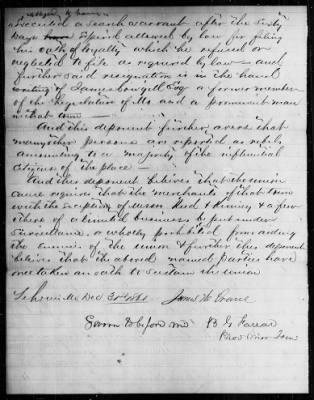 executed a search warrant after the sixty
days period allowed by law for filing
his oath of loyalty which he refused or
neglected to file as required by law - and
further said resignation is in the hand
writing of James Cowgill Esq a former member
of the Legislature of Mo and a prominent man
in that town -
And this deponent further avers that
many other persons are reported as rebels
amounting to a majority of the influential
citizens of the place -
And this deponent believes that the union
cause requires that the merchants of that town
with the exception of Messrs Reed & & a few
others of a limited business be put under
surveilance, or wholly prohibited from aiding
the enemies of the union & further this deponent
believes that the above named parties have
one taken an oath to sustain the union
Dec James W Crane
Sworn to before me B G Farrar
Prov Mar Genl